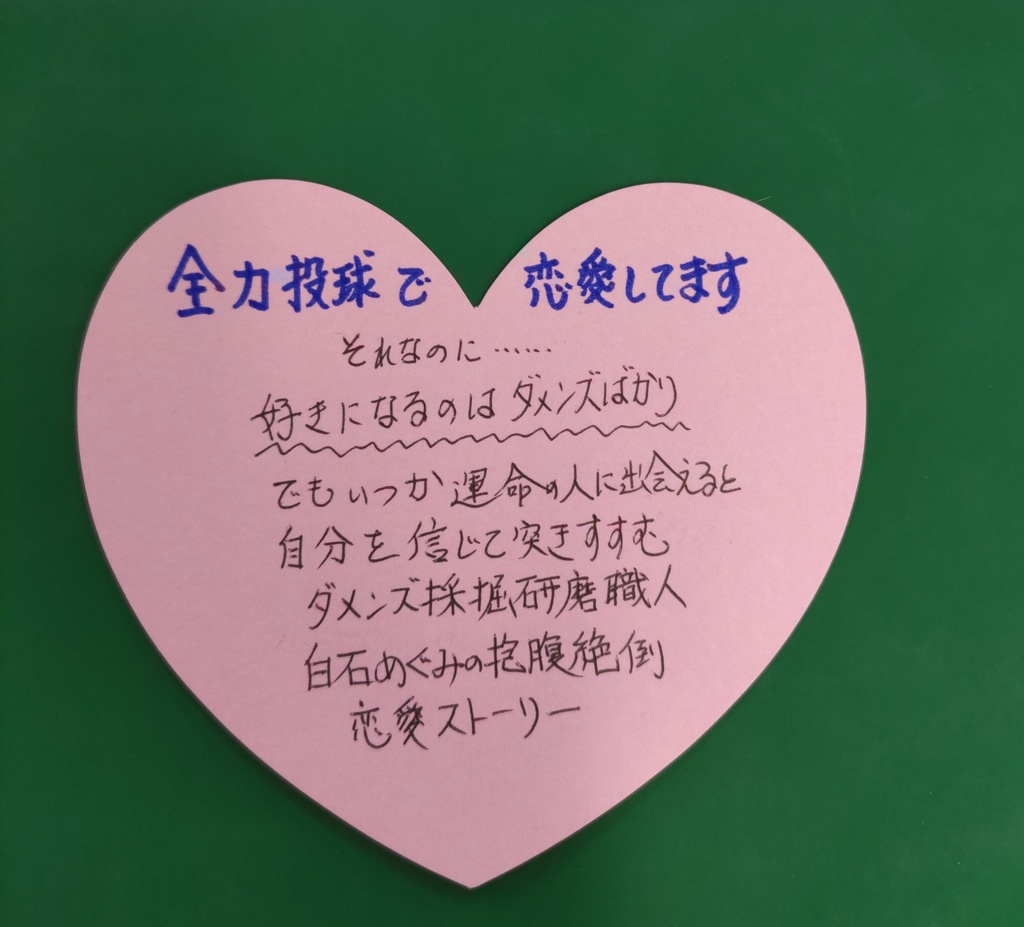 全力投球で 恋愛してます
それなのに……
好きになるのはダメンズばかり
でもいつか運命の人に出会えると
自分を信じて突きすすむ
ダメンズ採掘研磨職人
白石めぐみの抱腹絶倒
恋愛ストーリー